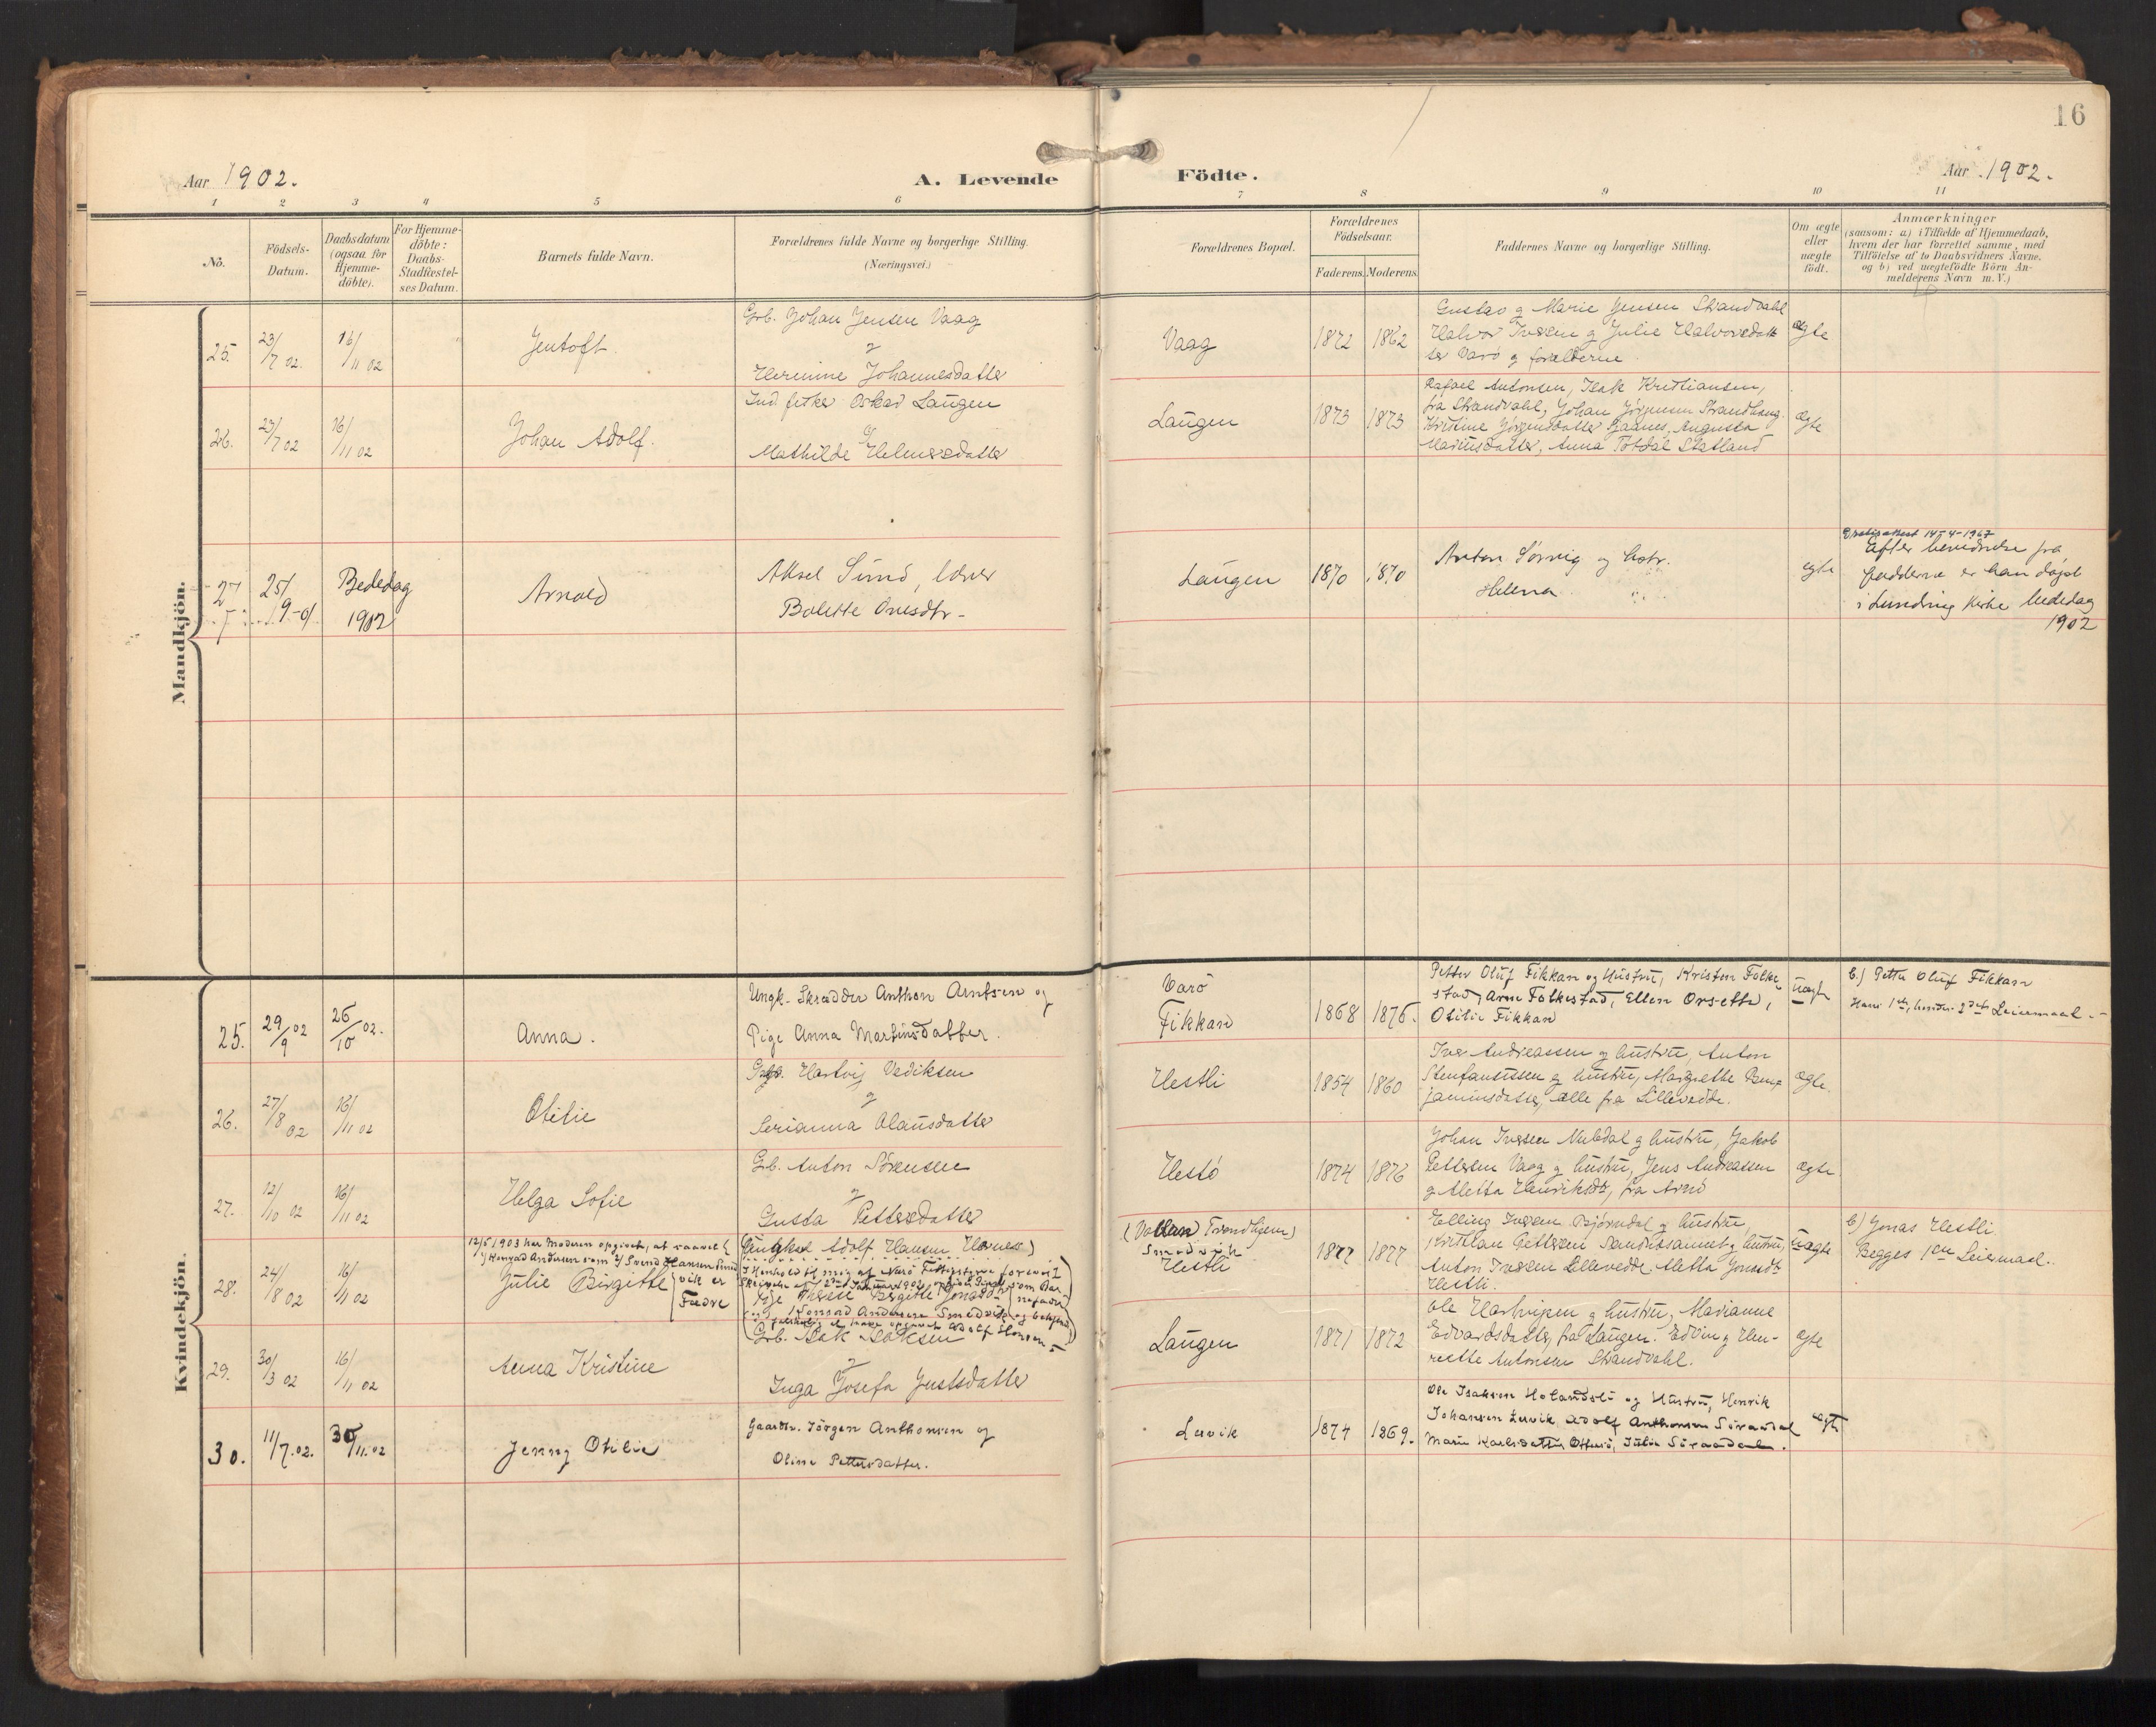 16
Aar 1902.
A. Levende
Födte.
Aar 1902.
1 2 3 4 5 6 7 8 9 10 11
No.
Födsels-
Datum.
Daabsdatum
(ogsaa for
Hjemme-
döbte).
For Hjemme-
döbte:
Daabs-
Stadfæstel-
ses Datum.
Barnets fulde Navn.
Forældrenes fulde Navne og borgerlige Stilling.
(Næringsvei.)
Forældrenes Bopæl.
Forældrenes
Födselsaar.
Faderens. Moderens.
Faddernes Navne og borgerlige Stilling.
Om ægte
eller
uægte
födt.
Anmærkninger
(saasom: a) i Tilfælde af Hjemmedaab,
hvem der har forrettet samme, med
Tilföielse af to Daabsvidners Navne.
og b) ved uægtefödte Börn An-
melderens Navn m. V.)
Mandkjön.
25.
23/7 02.
16/11 02
Jentoft.
Grb. Johan Jensen Vaag
g
Hermine Johannesdatter
Vaag
1872 1862
Gustav g Marie Jensen Strandvahl
Halvor Iversen g Julie Halvorsdatt
ter Varö g forælderne.
ægte
26.
23/7 02
16/11 02
Johan Adolf.
Ind. fisker Oskar Laugen
g
Mathilde Helmersdatter
Laugen
1873 1873
Rafael Antonsen, Isak Kristiansen,
fra Strandvahl, Johan Jörgensen Strandhaug.
Kristine Jörgensdatter, Augusta
Mariusdatter, Anna Totdal Statland
ægte
27
25/9-01
Bededag
1902
Arnold
Aksel Sund, lærer
Bolette Onesdtr-
Laugen
1870 1870
Anton Sörvig og hstr.
Helena.
egte
14-4-1967
Efter bevidnelse fra
fadderne er han døpt
i Lundring Kirke bededag
1902
Kvindekjön.
25.
29/9 02
26/10 02.
Anna.
Ungk. Skrædder Anthon Arntsen og
Pige Anna Martinsdatter.
Varö
Fikkan
1868 1876.
Petter Oluf Fikkan og Hustru, Kristen Folke
stad, Arne Folkestad, Ellen Orsetta,
Otilie Fikkan
uægte
b.) Petter Oluf Fikkan
Hans 1ste, hendes 2det Leiermaal.-
26.
27/8 02
16/11 02
Otilie
Hartvig Vediksen
g
Serianna Olausdatter
Hestli
1854 1860
Iver Andreassen g hustru, Anton
Stenfanussen g hustru, Margrethe Benja
jaminsdatter, alle fra Lillevedde.
ægte.
27.
12/10 02
16/11 02
Helga Sofie
Grb. Anton Sörensen
g
Gusta Pettersdatter
Hestö
1874 1876
Johan Iversen Nubdal g hustru, Jakob
Pettersen Vaag g hustru, Jens Andreassen
g Metta Henriksdtr, fra Arnö
ægte.
12/5 1903 har Moderen opgivet, at saavel
1/ Konrad Andersen som 2/ Svend Hansen Smed
vik er
Fædre
28.
24/8 02
16/11 02
Julie Birgitte
(Ungkarl Adolf Hansen Hovnes)
I Henhold til mig af Nærö Fattigstyre forevist
Skrivelse af 2den Januar 1903, opgives Pigens som Bar-
nefader
Pige Therese Birgitte Jonasdtr
Konrad Andersen Smedvik
Adolf Hansen
(Vollan Trondhjem)
Smedvik
Hestli
1877 1877
Elling Iversen Bjørndal g hustru,
Kristian Pettersen Sandvassaunet g hustru,
Anton Iversen Lillevedde. Metta Jonasdtr
Hestli.
uægte
b) Jonas Hestli.
Begges 1ste Leiermaal..
29.
30/3 02
16/11 02
Anna Kristine
Grb. Isak Isaksen
g
Inga Josefa Justsdatter
Laugen
1871 1872
Ole Hartvigsen g hustru, Marianne
Edvardsdatter, fra Laugen. Edvin g Hen-
riette Antonsen Strandvahl.
ægte
30.
11/7.02.
30/11.02
Jenny Otilie
Gaardbr. Jörgen Anthonsen og
Oline Pettersdatter.
Lervik
1874 1869.
Ole Isaksen Holandsli og Hustru, Henrik
Johansen Lervik, Adolf Anthonsen Söraadal
Marie Karlsdatter Otterö, Julie Söraadal.
ægte